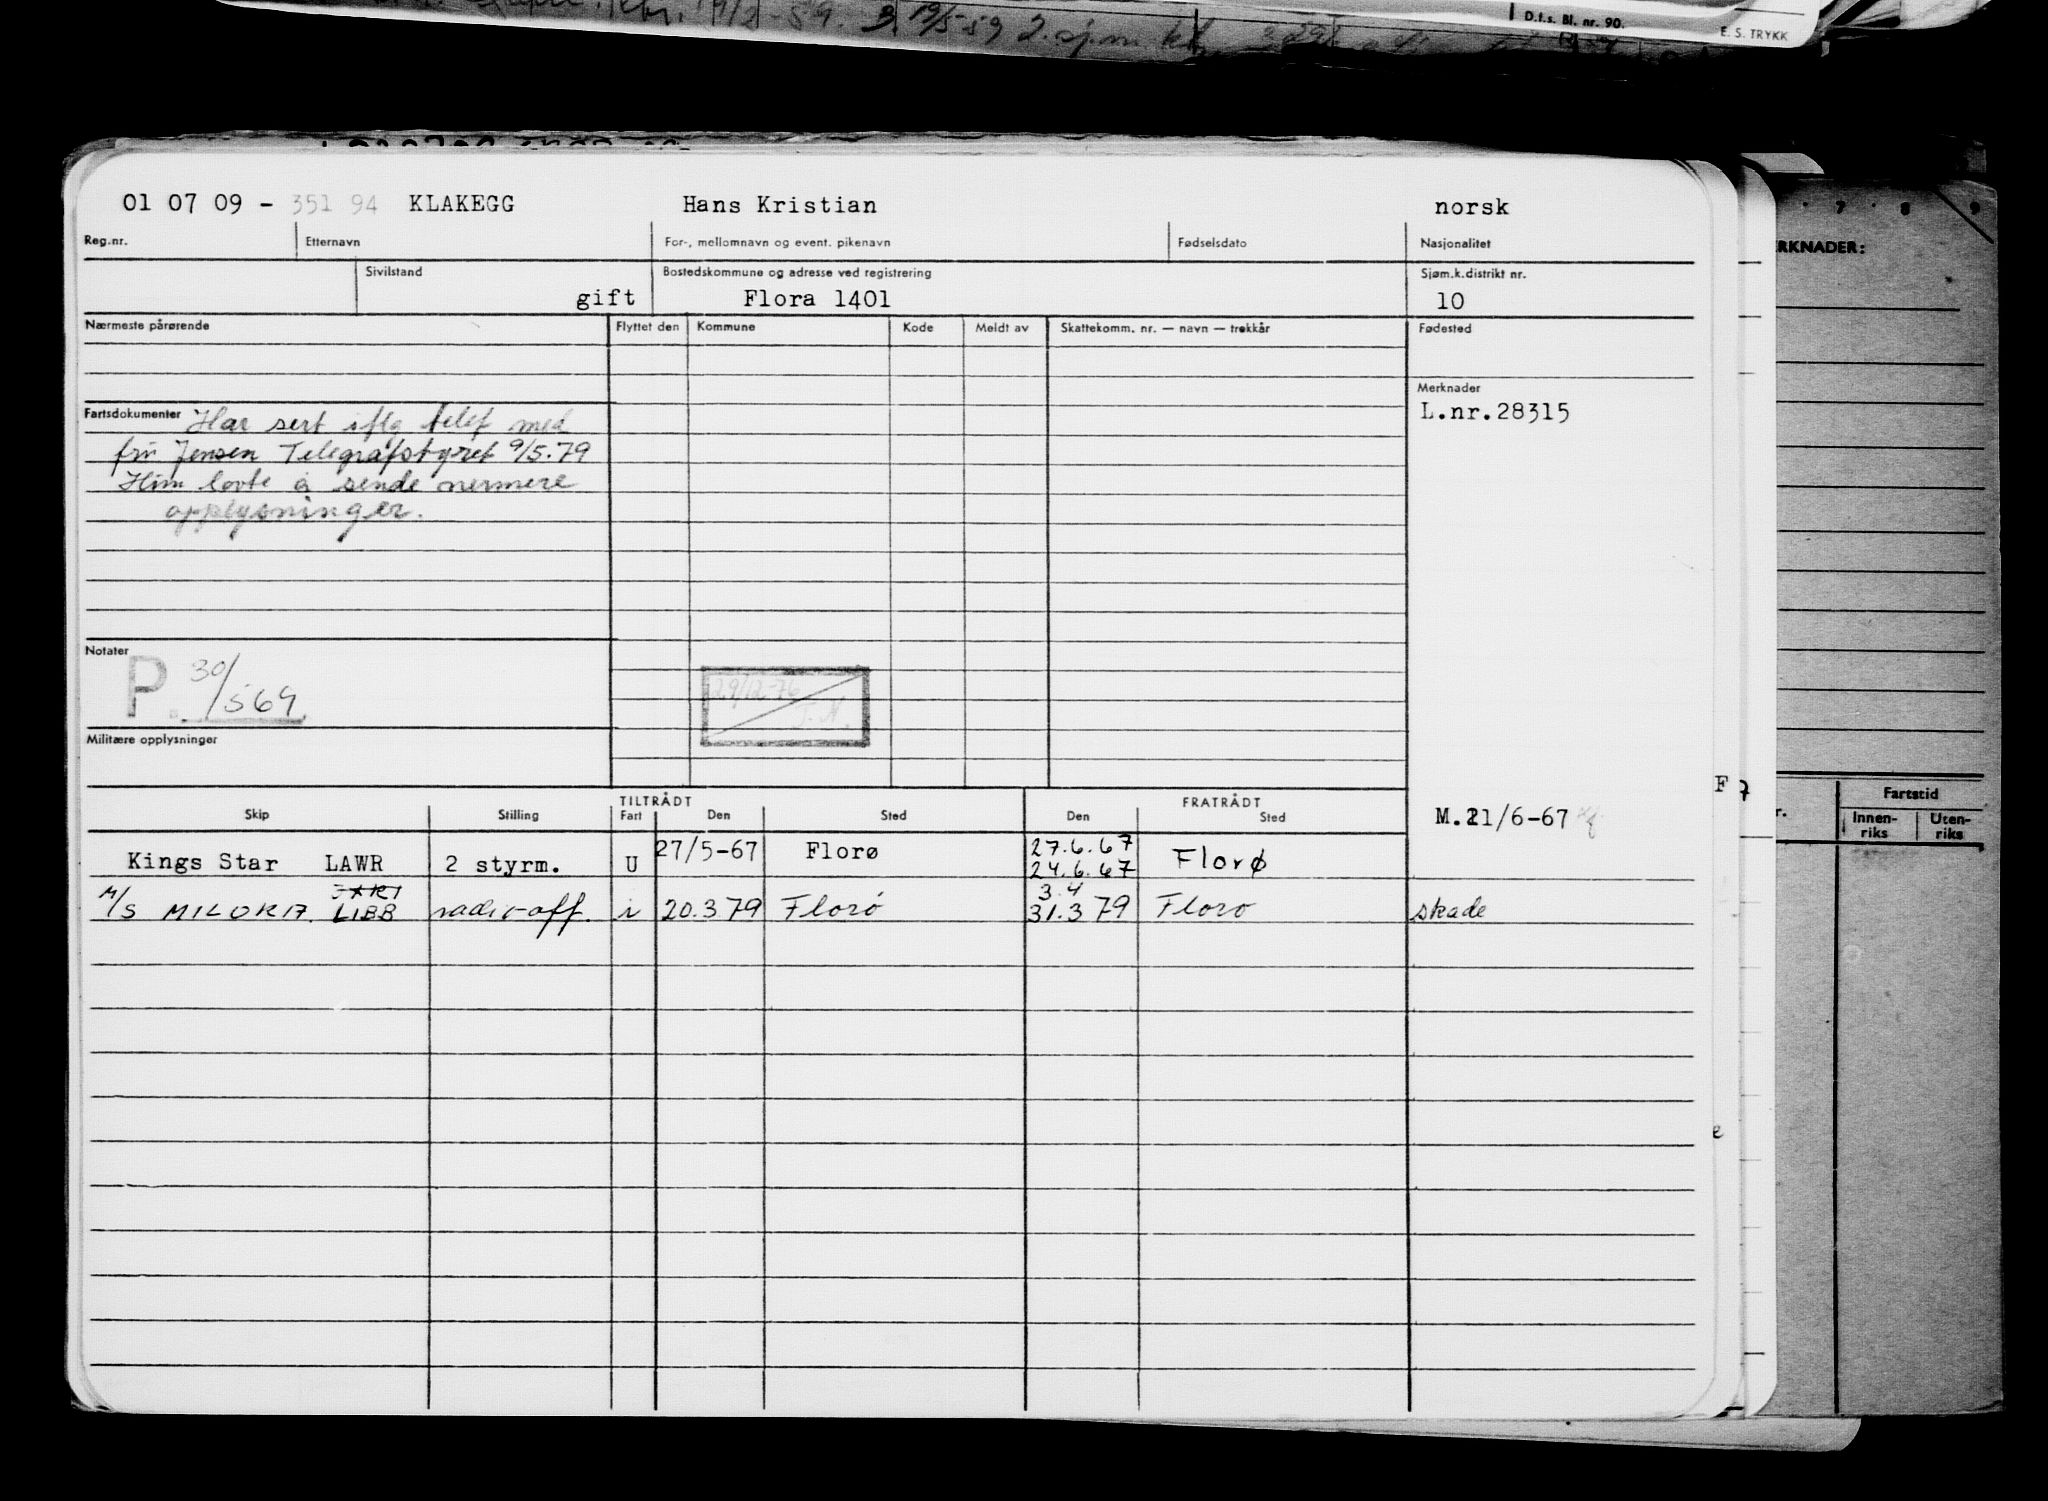 D.f.s. Bl. nr. 90.
E. S. TRYKK
01 07 09 - 351 94 KLAKEGG Hans Kristian norsk
Reg.nr. Etternavn For-, mellomnavn og event. pikenavn Fødselsdato Nasjonalitet
Sivilstand Bostedskommune og adresse ved registrering Sjøm.k.distrikt nr.
gift Flora 1401 10
Nærmeste pårørende Flyttet den Kommune Kode Meldt av Skattekomm. nr. — navn — trekkår Fødested
Merknader
L.nr.28315
Fartsdokumenter Har sert iflg telef med
fru Jensen Telegrafstyret 9/5.79
Hun lovte å sende nermere
opplysninger.
Notater
P. 30/569
29/12-76
Militære opplysninger
TILTRÅDT FRATRÅDT
Skip Stilling Fart Den Sted Den Sted
M.21/6-67
Kings Star LAWR 2 styrm. U 27/5-67 Florø 27.6.67 24.6.67 Florø
M/S MILORIA LIBB radio-off. i 20.3 79 Florø 3.4 31.3 79 Florø skade
RKNADER:
Fartstid
Innen-riks Uten-riks